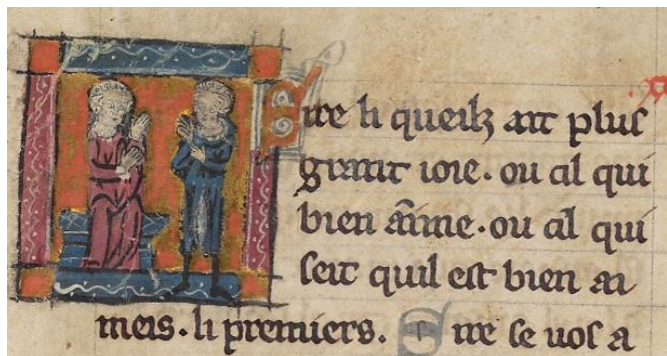 Sire li queilz ait plus
grant ioie. ou cil qui
bien aimme. ou cil qui
seit quil est bien ai
meis. li premiers. Sire se vos a